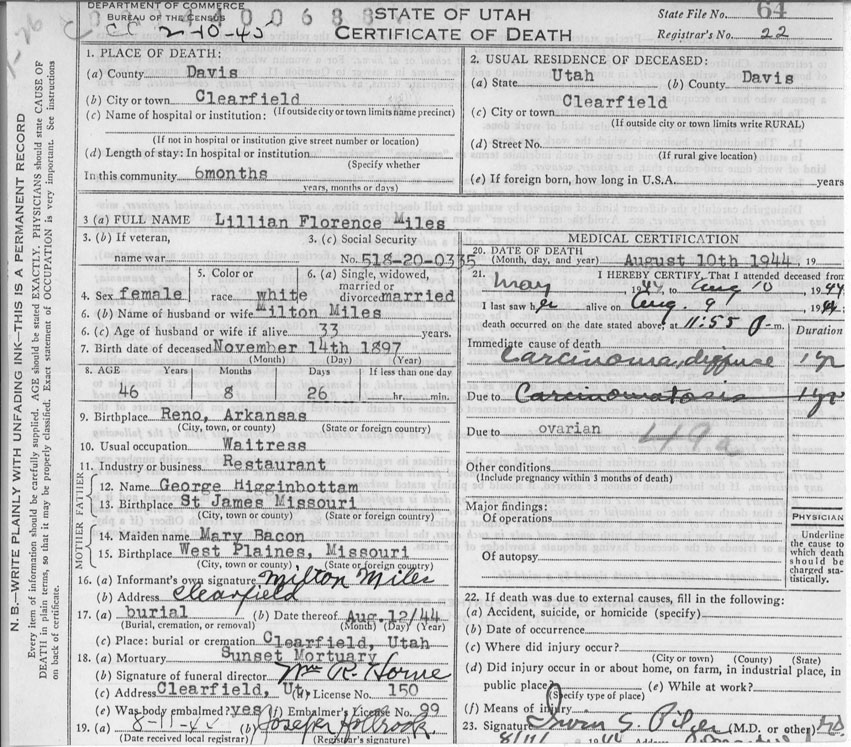 DEPARTMENT OF COMMERCE
BUREAU OF THE CENSUS
CC 2-10-45
STATE OF UTAH
CERTIFICATE OF DEATH
State File No. 64
Registrar's No. 22
N. B.—WRITE PLAINLY WITH UNFADING INK—THIS IS A PERMANENT RECORD
Every item of information should be carefully supplied. AGE should be stated EXACTLY. PHYSICIANS should state CAUSE OF
DEATH in plain terms, so that it may be properly classified. Exact statement of OCCUPATION is very important. See instructions
on back of certificate.
1. PLACE OF DEATH:
(a) County Davis
(b) City or town Clearfield
(If outside city or town limits name precinct)
(c) Name of hospital or institution:
(If not in hospital or institution give street number or location)
(d) Length of stay: In hospital or institution
(Specify whether
In this community 6months
years, months or days)
2. USUAL RESIDENCE OF DECEASED:
(a) State Utah (b) County Davis
(c) City or town Clearfield
(If outside city or town limits write RURAL)
(d) Street No.
(If rural give location)
(e) If foreign born, how long in U.S.A. years
3 (a) FULL NAME Lillian Florence Miles
3. (b) If veteran, name war
3. (c) Social Security No. 518-20-0335
4. Sex female
5. Color or race white
6. (a) Single, widowed, married or divorced married
6. (b) Name of husband or wife Milton Miles
6. (c) Age of husband or wife if alive 33 years.
7. Birth date of deceased November 14th 1897
(Month) (Day) (Year)
8. AGE Years Months Days If less than one day
46 8 26 hr. min.
9. Birthplace Reno, Arkansas
(City, town, or county) (State or foreign country)
10. Usual occupation Waitress
11. Industry or business Restaurant
FATHER
12. Name George Higginbottam
13. Birthplace St James Missouri
(City, town or county) (State or foreign country)
MOTHER
14. Maiden name Mary Bacon
15. Birthplace West Plaines, Missouri
(City, town or county) (State or foreign country)
16. (a) Informant's own signature Milton Miles
(b) Address Clearfield
17. (a) burial (b) Date thereof Aug.12/44
(Burial, cremation, or removal) (Month) (Day) (Year)
(c) Place: burial or cremation Clearfield, Utah
18. (a) Mortuary Sunset Mortuary
(b) Signature of funeral director Wm R. Horne
(c) Address Clearfield, Ut. License No. 150
(e) Was body embalmed? yes (f) Embalmer's License No. 99
19. (a) 8-11-44 (b) Joseph Holbrook
(Date received local registrar) (Registrar's signature)
MEDICAL CERTIFICATION
20. DATE OF DEATH
(Month, day, and year) August 10th 1944, 19
21. I HEREBY CERTIFY, That I attended deceased from
May 1944 to Aug 10 1944
I last saw her alive on Aug. 9 1944;
death occurred on the date stated above, at 11:55 P.m.
Duration
Immediate cause of death
Carcinoma, diffuse 1 yr
Due to Carcinomatosis 1 yr
Due to ovarian
49a
Other conditions
(Include pregnancy within 3 months of death)
Major findings:
Of operations
Of autopsy
PHYSICIAN
Underline
the cause to
which death
should be
charged sta-
tistically.
22. If death was due to external causes, fill in the following:
(a) Accident, suicide, or homicide (specify)
(b) Date of occurrence
(c) Where did injury occur?
(City or town) (County) (State)
(d) Did injury occur in or about home, on farm, in industrial place, in
public place? (e) While at work?
(Specify type of place)
(f) Means of injury
23. Signature (M.D. or other)